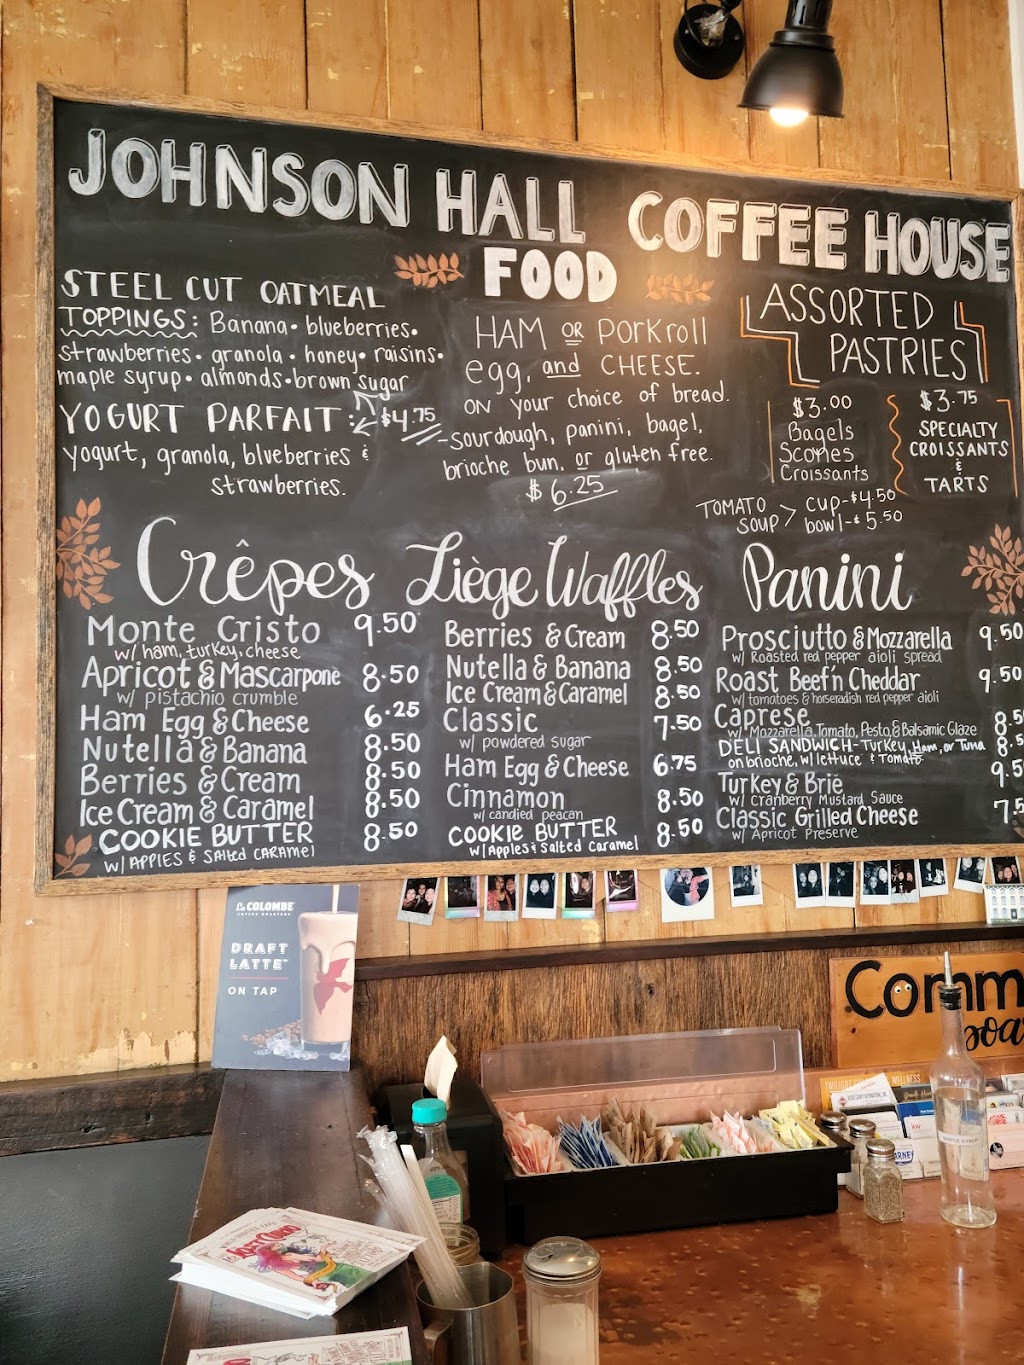 JOHNSON HALL COFFEE HOUSE
FOOD
STEEL CUT OATMEAL
TOPPINGS: Banana • blueberries •
strawberries • granola • honey • raisins •
maple syrup • almonds • brown sugar
YOGURT PARFAIT: $4.75
yogurt, granola, blueberries &
strawberries.
HAM OR PORKroll
egg, and CHEESE.
ON your choice of bread.
-sourdough, panini, bagel,
brioche bun, or gluten free.
$6.25
ASSORTED
PASTRIES
$3.00
Bagels
Scones
Croissants
$3.75
SPECIALTY
CROISSANTS
&
TARTS
TOMATO SOUP > cup-$4.50
bowl-$5.50
Crêpes
Monte Cristo 9.50
w/ ham, turkey, cheese
Apricot & Mascarpone 8.50
w/ pistachio crumble
Ham Egg & Cheese 6.25
Nutella & Banana 8.50
Berries & Cream 8.50
Ice Cream & Caramel 8.50
COOKIE BUTTER 8.50
w/ APPLES & Salted CARAMEL
Liège Waffles
Berries & Cream 8.50
Nutella & Banana 8.50
Ice Cream & Caramel 8.50
Classic 7.50
w/ powdered sugar
Ham Egg & Cheese 6.75
Cinnamon 8.50
w/ candied peacan
COOKIE BUTTER 8.50
w/ Apples & Salted Caramel
Panini
Prosciutto & Mozzarella 9.50
w/ Roasted red pepper aioli spread
Roast Beef'n Cheddar 9.50
w/ tomatoes & horseradish red pepper aioli
Caprese 8.5
w/ Mozzarella, Tomato, Pesto, & Balsamic Glaze
DELI SANDWICH - Turkey, Ham, or Tuna 8.5
on brioche, w/ lettuce & Tomato
Turkey & Brie 9.5
w/ Cranberry Mustard Sauce
Classic Grilled Cheese 7.5
w/ Apricot Preserve
La COLOMBE
COFFEE ROASTERS
DRAFT
LATTE™
ON TAP
Comm
boa
SIMPLE SYRUP